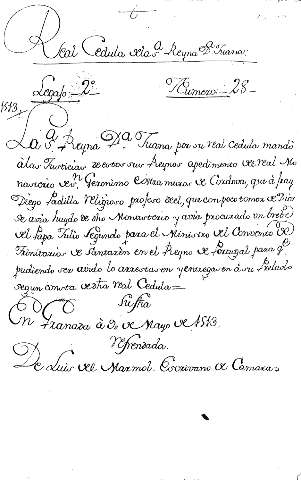 Real Cedula de la S.ª Reyna D.ª Juana.
Legajo 2º Numero 28
1513.
La S.ª Reyna D.ª Juana por su real Cedula mandó
á las Justicias de estos sus Reynos apedimento de el real Mo
nasterio de S.n Geronimo extramuros de Cordova, que á fray
Diego Padilla religioso profeso de el, que con poco temor de Dios
se avia huydo de dho Monasterio, y avia procurado un brebe
del Papa Julio Segundo para el Ministro del Convento de
Trinitarios de Santaren en el Reyno de Portugal para q.e
pudiendo ser avido lo arrestasen y entregasen á su Prelado
segun consta de dha real Cedula =
Su fha
En Granada á de Mayo de 1513.
Refrendada.
De Luis de el Marmol Escrivano de Camara